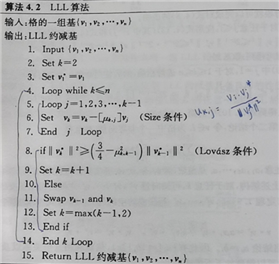 算法4.2 LLL算法
输入:格的一组基{v₁,v₂,⋯,vₙ}
输出:LLL约减基
1. Input {v₁,v₂,⋯,vₙ}
2. Set k=2
3. Set v₁*=v₁
4. Loop while k≤n
5. Loop j=1,2,3,⋯,k-1
6. Set vₖ=vₖ-[μₖ,ⱼ]vⱼ (Size 条件)
7. End j Loop
uₖ,ⱼ = vᵢ·vⱼ* / ‖vⱼ*‖²
8. if‖vₖ*‖²≥(3/4-μ²ₖ,ₖ₋₁)‖vₖ₋₁*‖² (Lovász 条件)
9. Set k=k+1
10. Else
11. Swap vₖ₋₁ and vₖ
12. Set k=max(k-1,2)
13. End if
14. End k Loop
15. Return LLL约减基{v₁,v₂,⋯,vₙ}